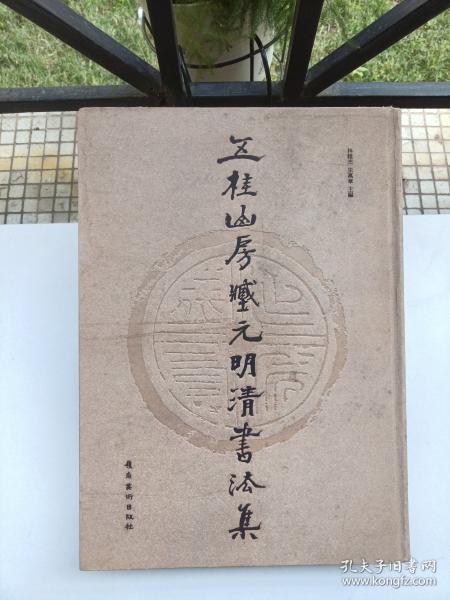 林雅杰 朱萬章 主編
五桂山房藏元明清書法集
嶺南美術出版社
孔夫子旧书网
www.kongfz.com